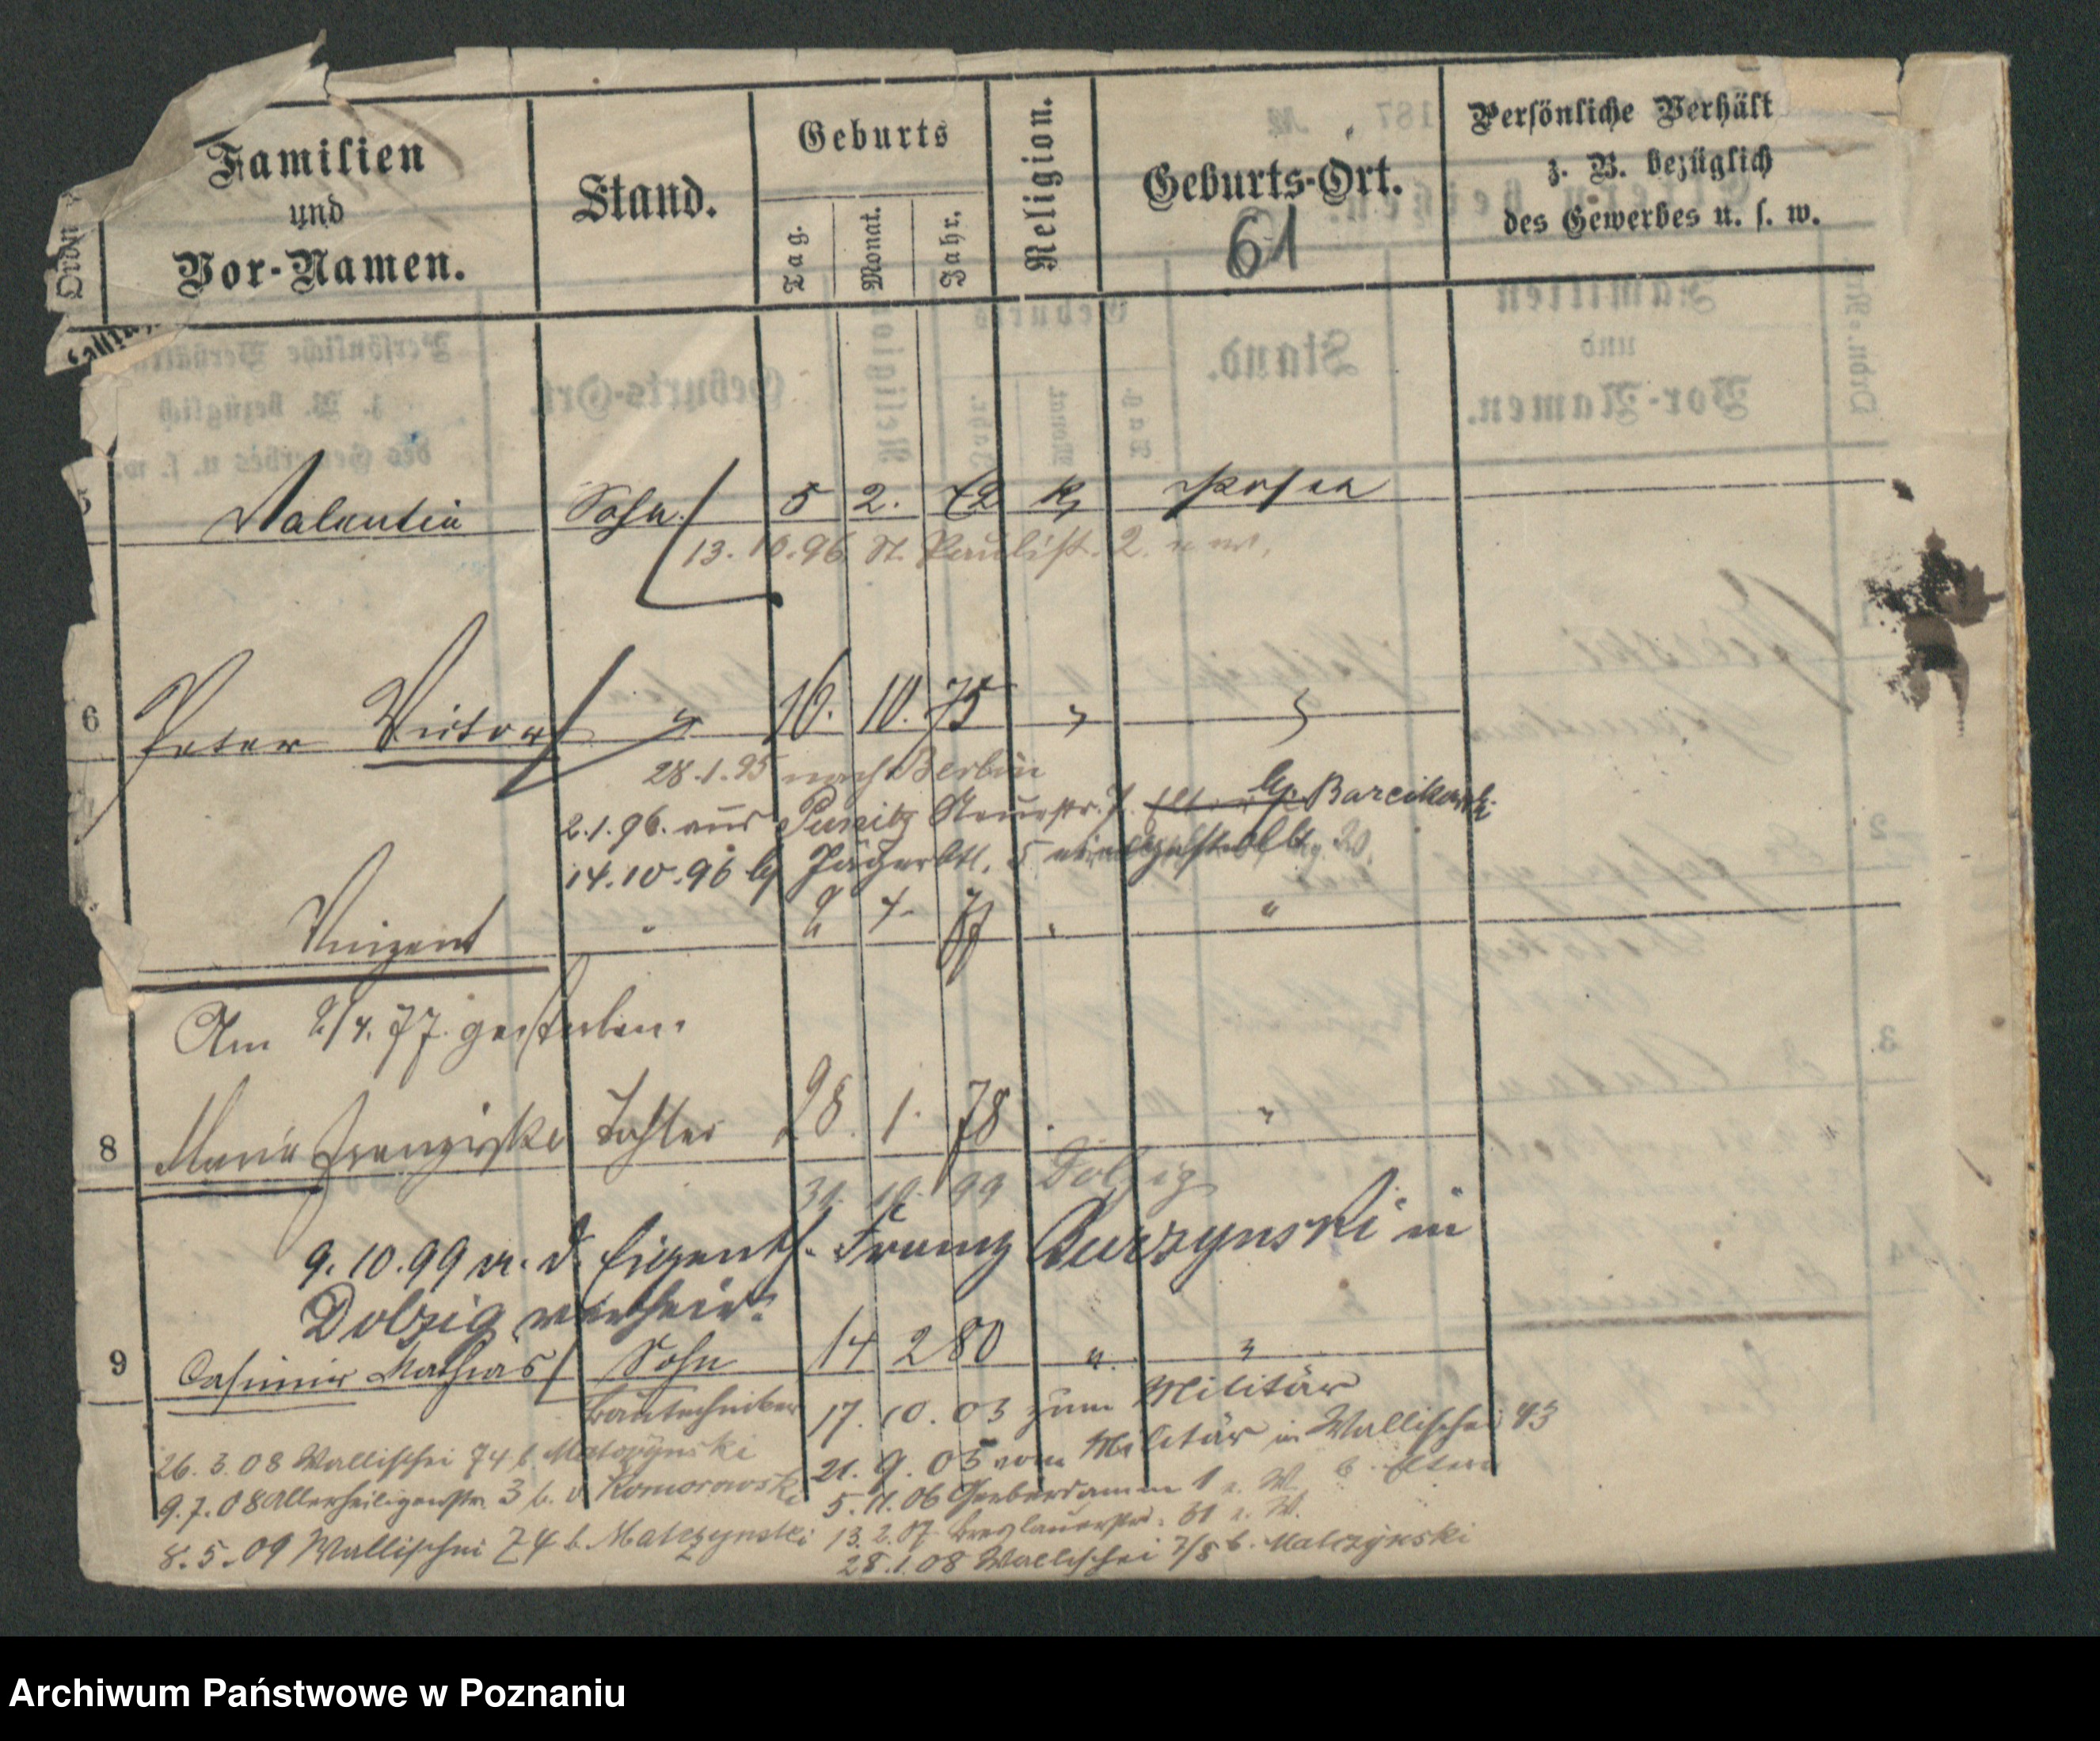 Familien
und
Vor-Namen.
Stand.
Geburts
Tag.
Monat.
Jahr.
Religion.
Geburts-Ort.
61
Persönliche Verhält
z. B. bezüglich
des Gewerbes u. s. w.
Ordn
5 Valentin Sohn 5 2. 72 K Posen
13. 10. 96 St. Paulist. 2.
6 Peter Victor " 16. 10. 75 " "
28.1.95 nach Berlin
2.1.96. aus Punitz Neuestr. 7. bei Barcikowski
14.10.96 Jägerbtl. 5 eingestellt
Vinzent " 2 4. 77 " "
Am 2/4. 77. gestorben.
8 Marie Franziska Tochter 28. 1. 78 " "
31. 10. 99 Dolzig
9. 10. 99 m. d. Eigenth. Franz Burzynski in
Dolzig verheir.
9 Casimir Mathias Sohn 14 2 80 " "
Bautechniker 17. 10. 03 zum Militär
21. 9. 05 vom Militär in Wallischei 73
b. Eltern
5. 11. 06 Gerberdamm 1
13. 2. 07 Breslauerstr. 31
28.1.08 Wallischei 7/8 b. Matczynski
26. 3. 08 Wallischei 74 b. Matczynski
9. 7. 08 Allerheiligenstr. 3 b. v. Komorowski
8. 5. 09 Wallischei 74 b. Matczynski
Archiwum Państwowe w Poznaniu